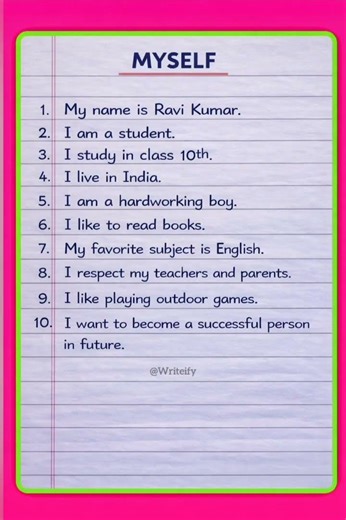 MYSELF
1. My name is Ravi Kumar.
2. I am a student.
3. I study in class 10th.
4. I live in India.
5. I am a hardworking boy.
6. I like to read books.
7. My favorite subject is English.
8. I respect my teachers and parents.
9. I like playing outdoor games.
10. I want to become a successful person
in future.
@Writeify